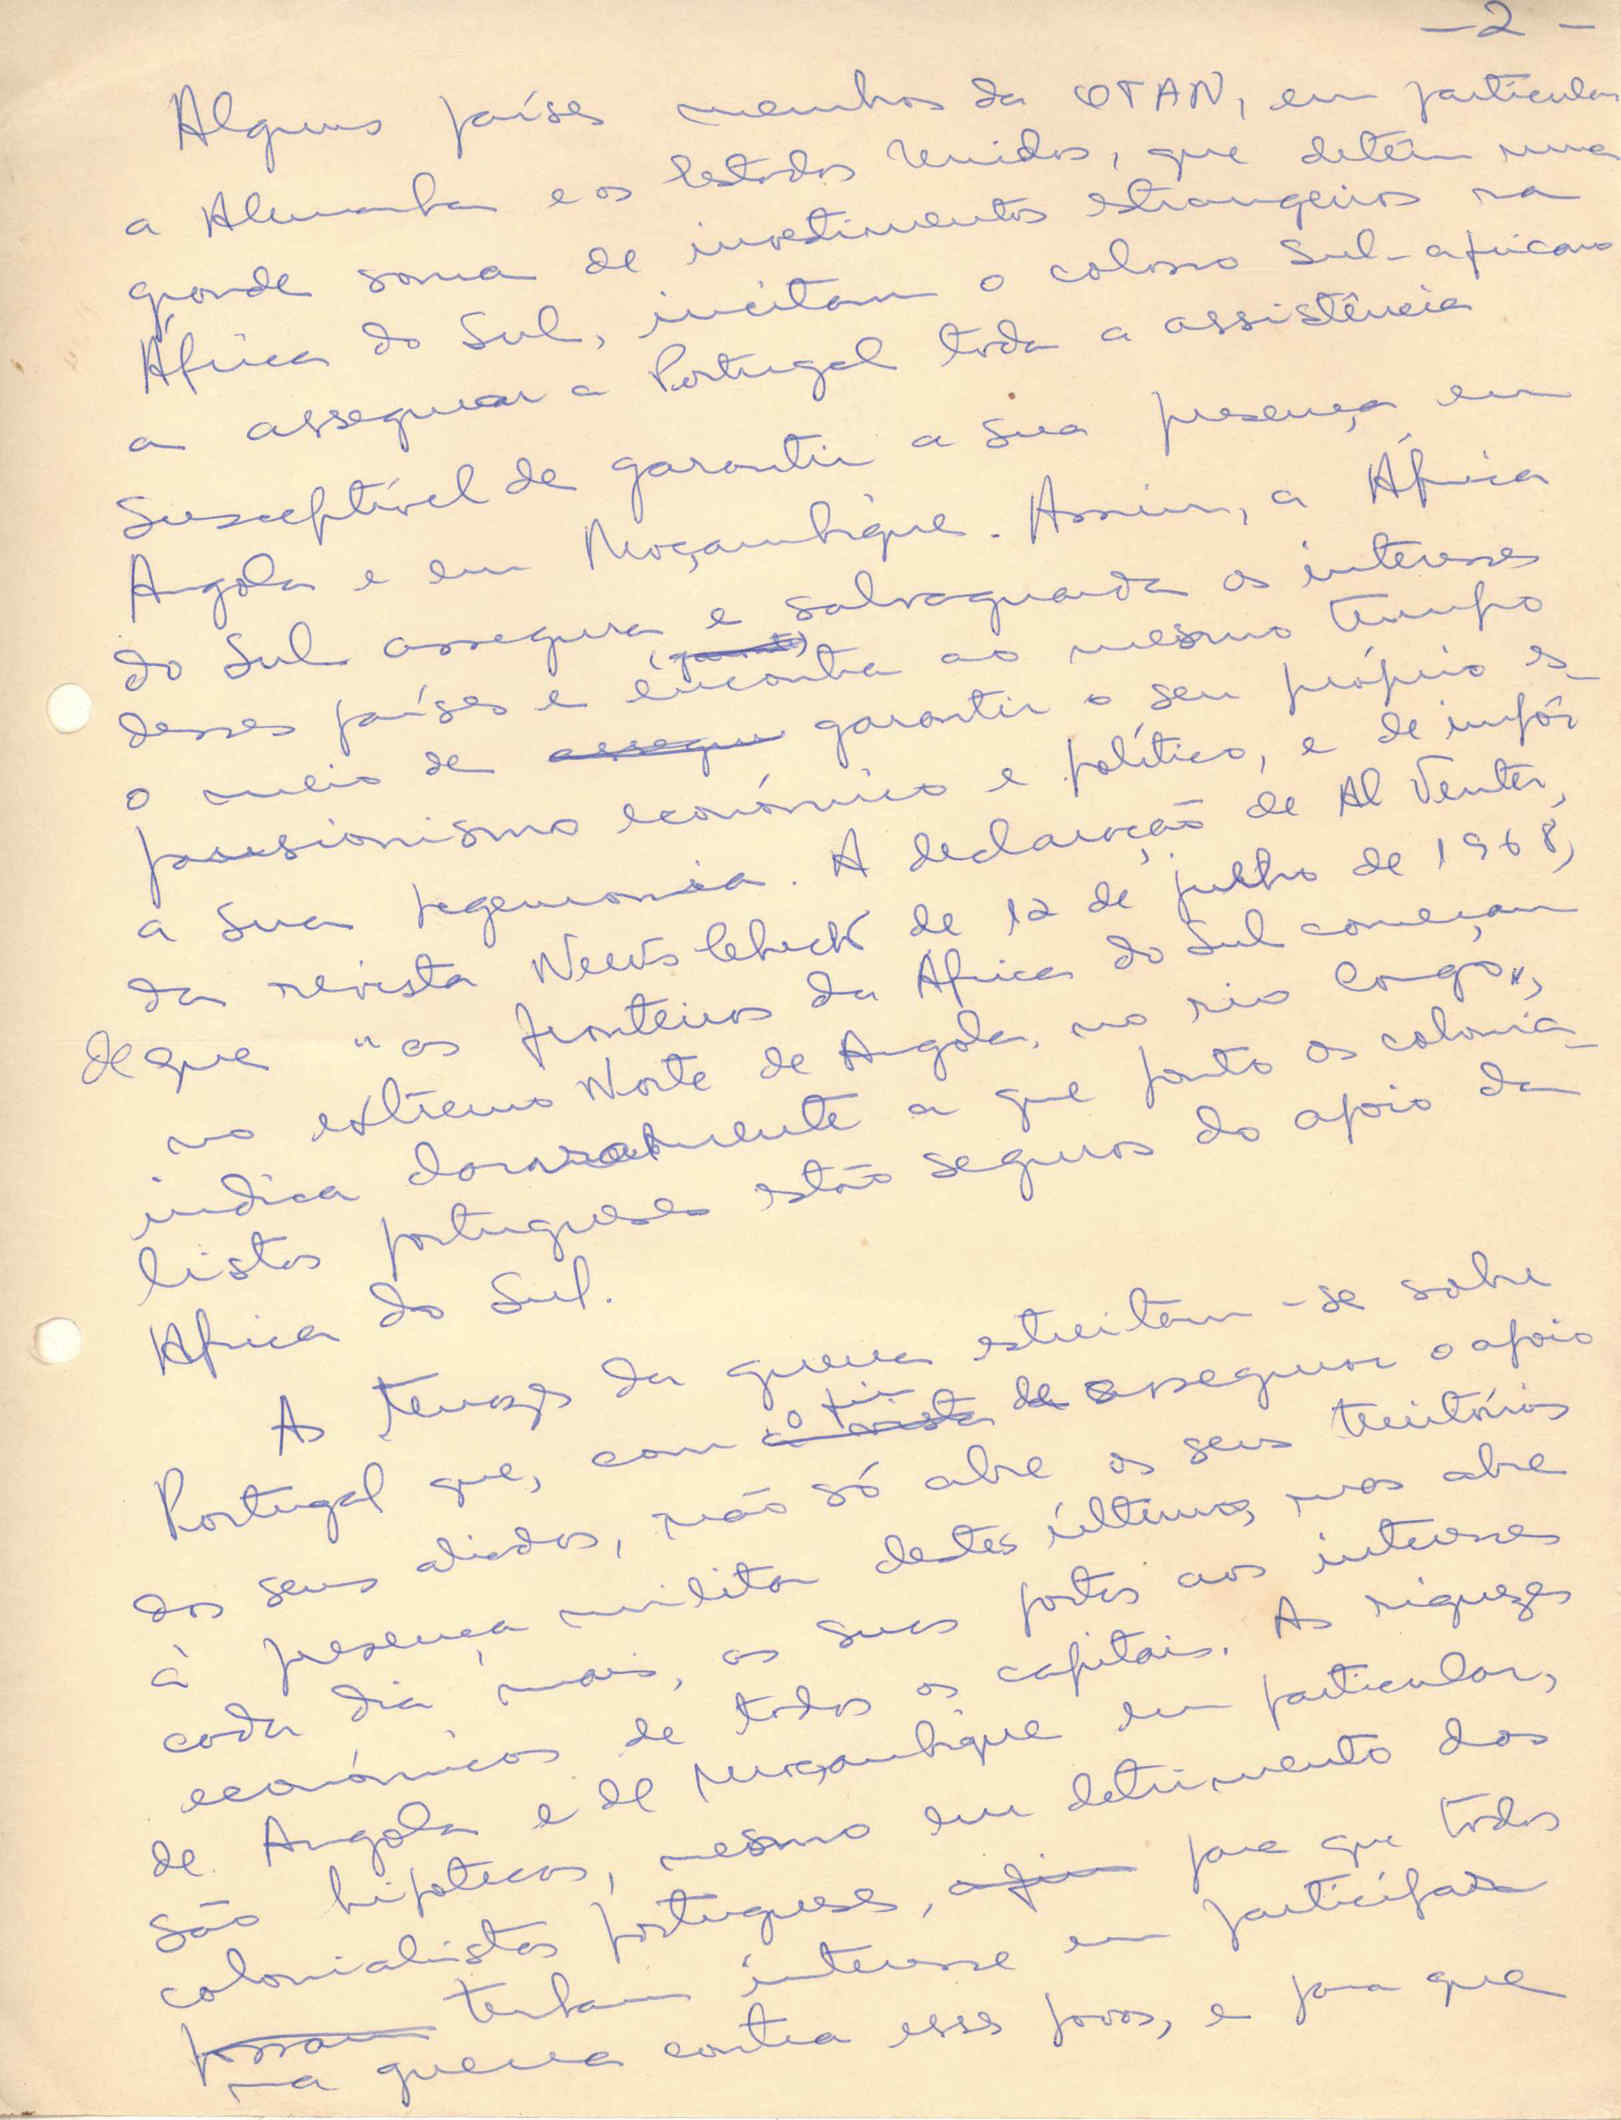 - 2 -
Alguns países membros da OTAN, em particular
a Alemanha e os Estados Unidos, que detêm uma
grande soma de investimentos estrangeiros na
África do Sul, incitam o colosso sul-africano
a assegurar a Portugal toda a assistência
susceptível de garantir a sua presença em
Angola e em Moçambique. Assim, a África
do Sul assegura e salvaguarda os interesses
desses países e encontra ao mesmo tempo
o meio de assegu garantir o seu próprio ex-
pansionismo económico e político, e de impôr
a sua hegemonia. A declaração de Al Venter,
da revista News Check de 12 de julho de 1968,
de que "as fronteiras da Africa do Sul começam
no extremo Norte de Angola, no rio Congo",
indica claramente a que ponto os colonia-
listas portugueses estão seguros do apoio da
Africa do Sul.
As tenazes da guerra estreitam-se sobre
Portugal que, com o fim de assegurar o apoio
dos seus aliados, não só abre os seus territórios
à presença militar destes últimos, mas abre
cada dia mais, as suas portas aos interesses
económicos de todos os capitais. As riquezas
de Angola e de Moçambique em particular,
são hipotecas, mesmo em detrimento dos
colonialistas portugueses, afim para que todos
possam tenham interesse em participar
na guerra contra esses povos, e para que